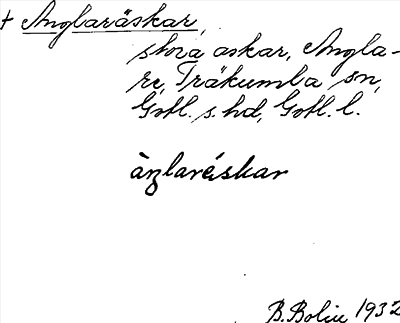 + Anglaräskar,
stora askar, Angla-
re, Träkumla sn,
Gotl. s. hd, Gotl. l.
àŋlaréskar
B. Bolin 1932